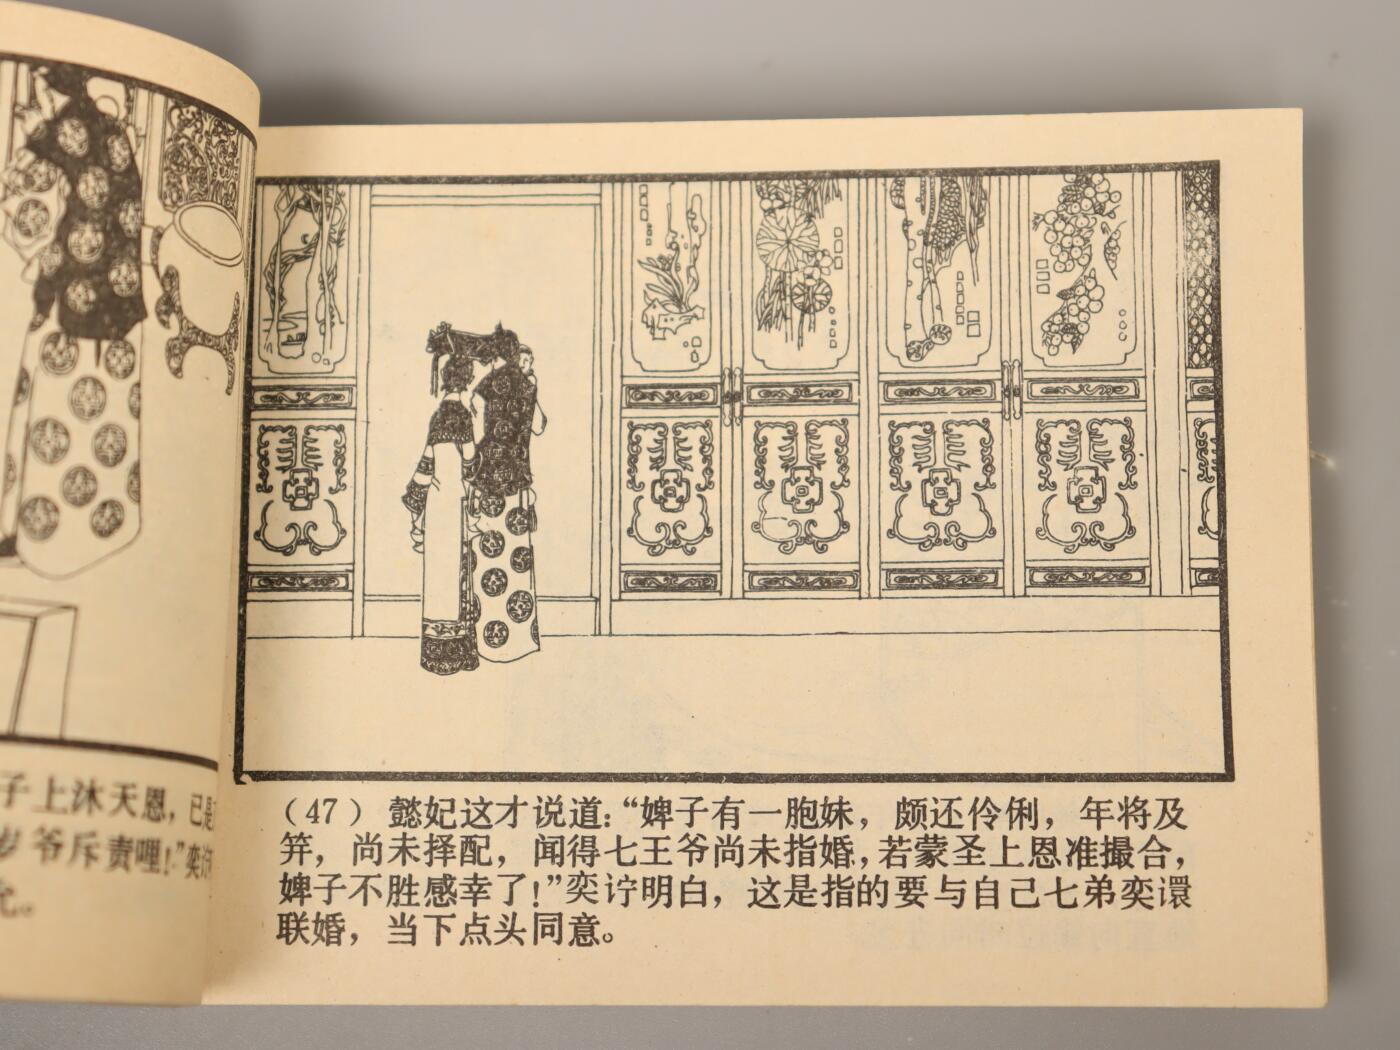 子上沐天恩，已是
岁爷斥责哩！”奕
允。
（47）懿妃这才说道：“婢子有一胞妹，颇还伶俐，年将及
笄，尚未择配，闻得七王爷尚未指婚，若蒙圣上恩准撮合，
婢子不胜感幸了！”奕泞明白，这是指的要与自己七弟奕澴
联婚，当下点头同意。